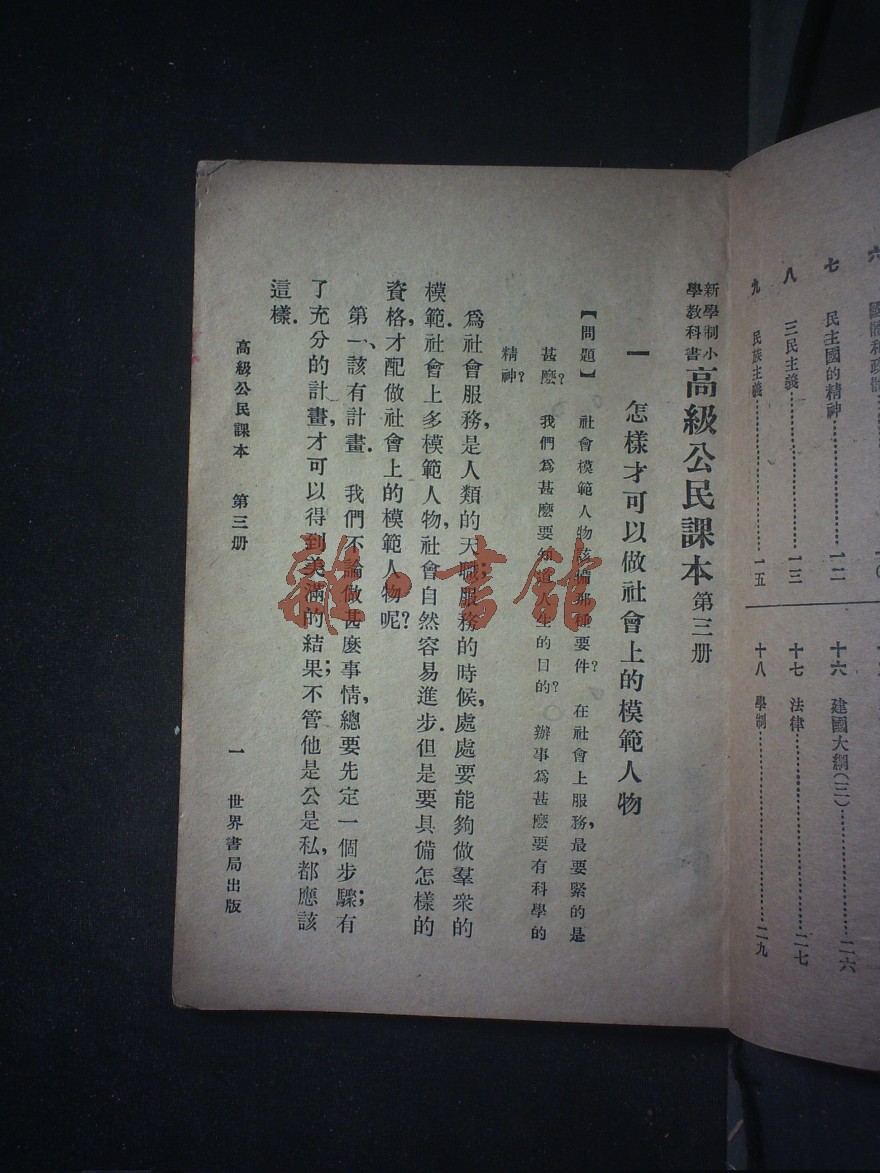 六 國體和政體
七 民主國的精神……一二
八 三民主義……一三
九 民族主義……一五
十六 建國大綱(三)……二六
十七 法律……二七
十八 學制……二九
新學制小學教科書 高級公民課本 第三册
一 怎樣才可以做社會上的模範人物
【問題】 社會模範人物該備那種要件? 在社會上服務,最要緊的是
甚麽? 我們爲甚麽要知道人生的目的? 辦事爲甚麽要有科學的
精神?
爲社會服務,是人類的天職;服務的時候,處處要能夠做羣衆的
模範.社會上多模範人物,社會自然容易進步.但是要具備怎樣的
資格,才配做社會上的模範人物呢?
第一、該有計畫. 我們不論做甚麽事情,總要先定一個步驟;有
了充分的計畫,才可以得到美滿的結果;不管他是公是私,都應該
這樣.
高級公民課本 第三册 一 世界書局出版
雜·書館